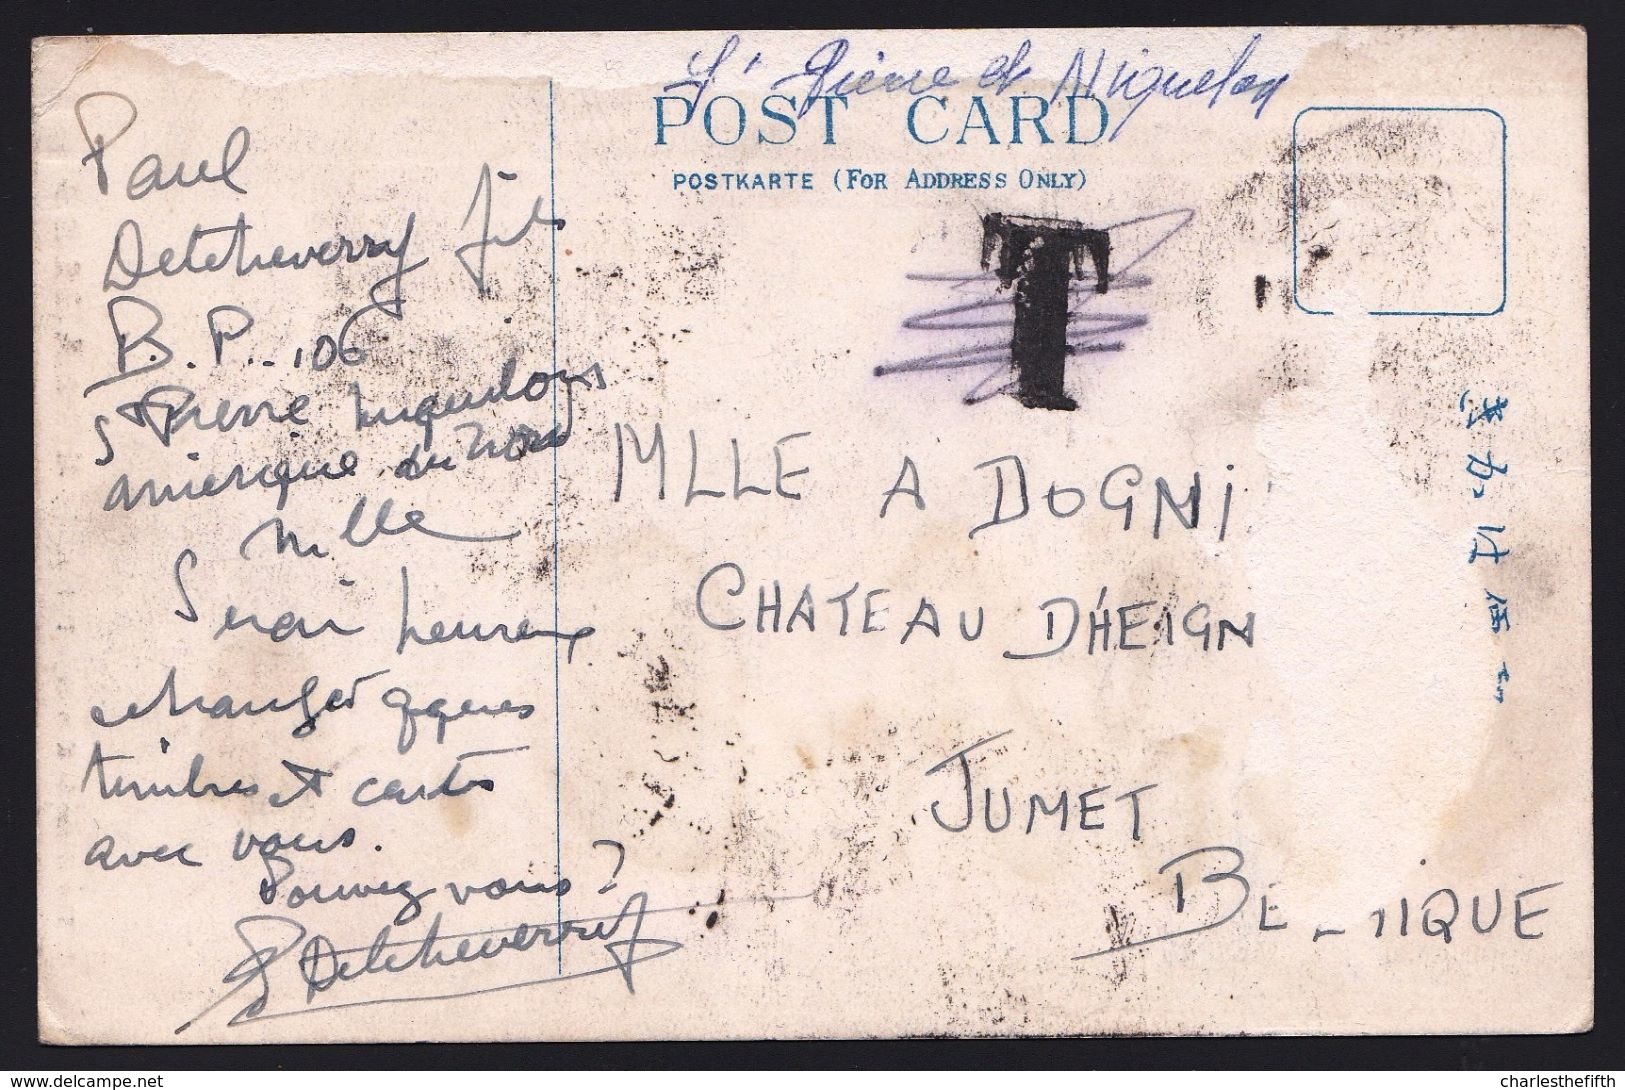 St Pierre et Miquelon
POST CARD
POSTKARTE (FOR ADDRESS ONLY)
T
Paul
Detcheverry fils
B.P. 106
St Pierre Miquelon
amerique du Nord
Mlle
Serai heureux
echanger qques
timbres et cartes
avec vous.
Pouvez vous?
P Detcheverry
MLLE A DOGNI
CHATEAU D'HEIGN
JUMET
BE IQUE
charlesthefifth